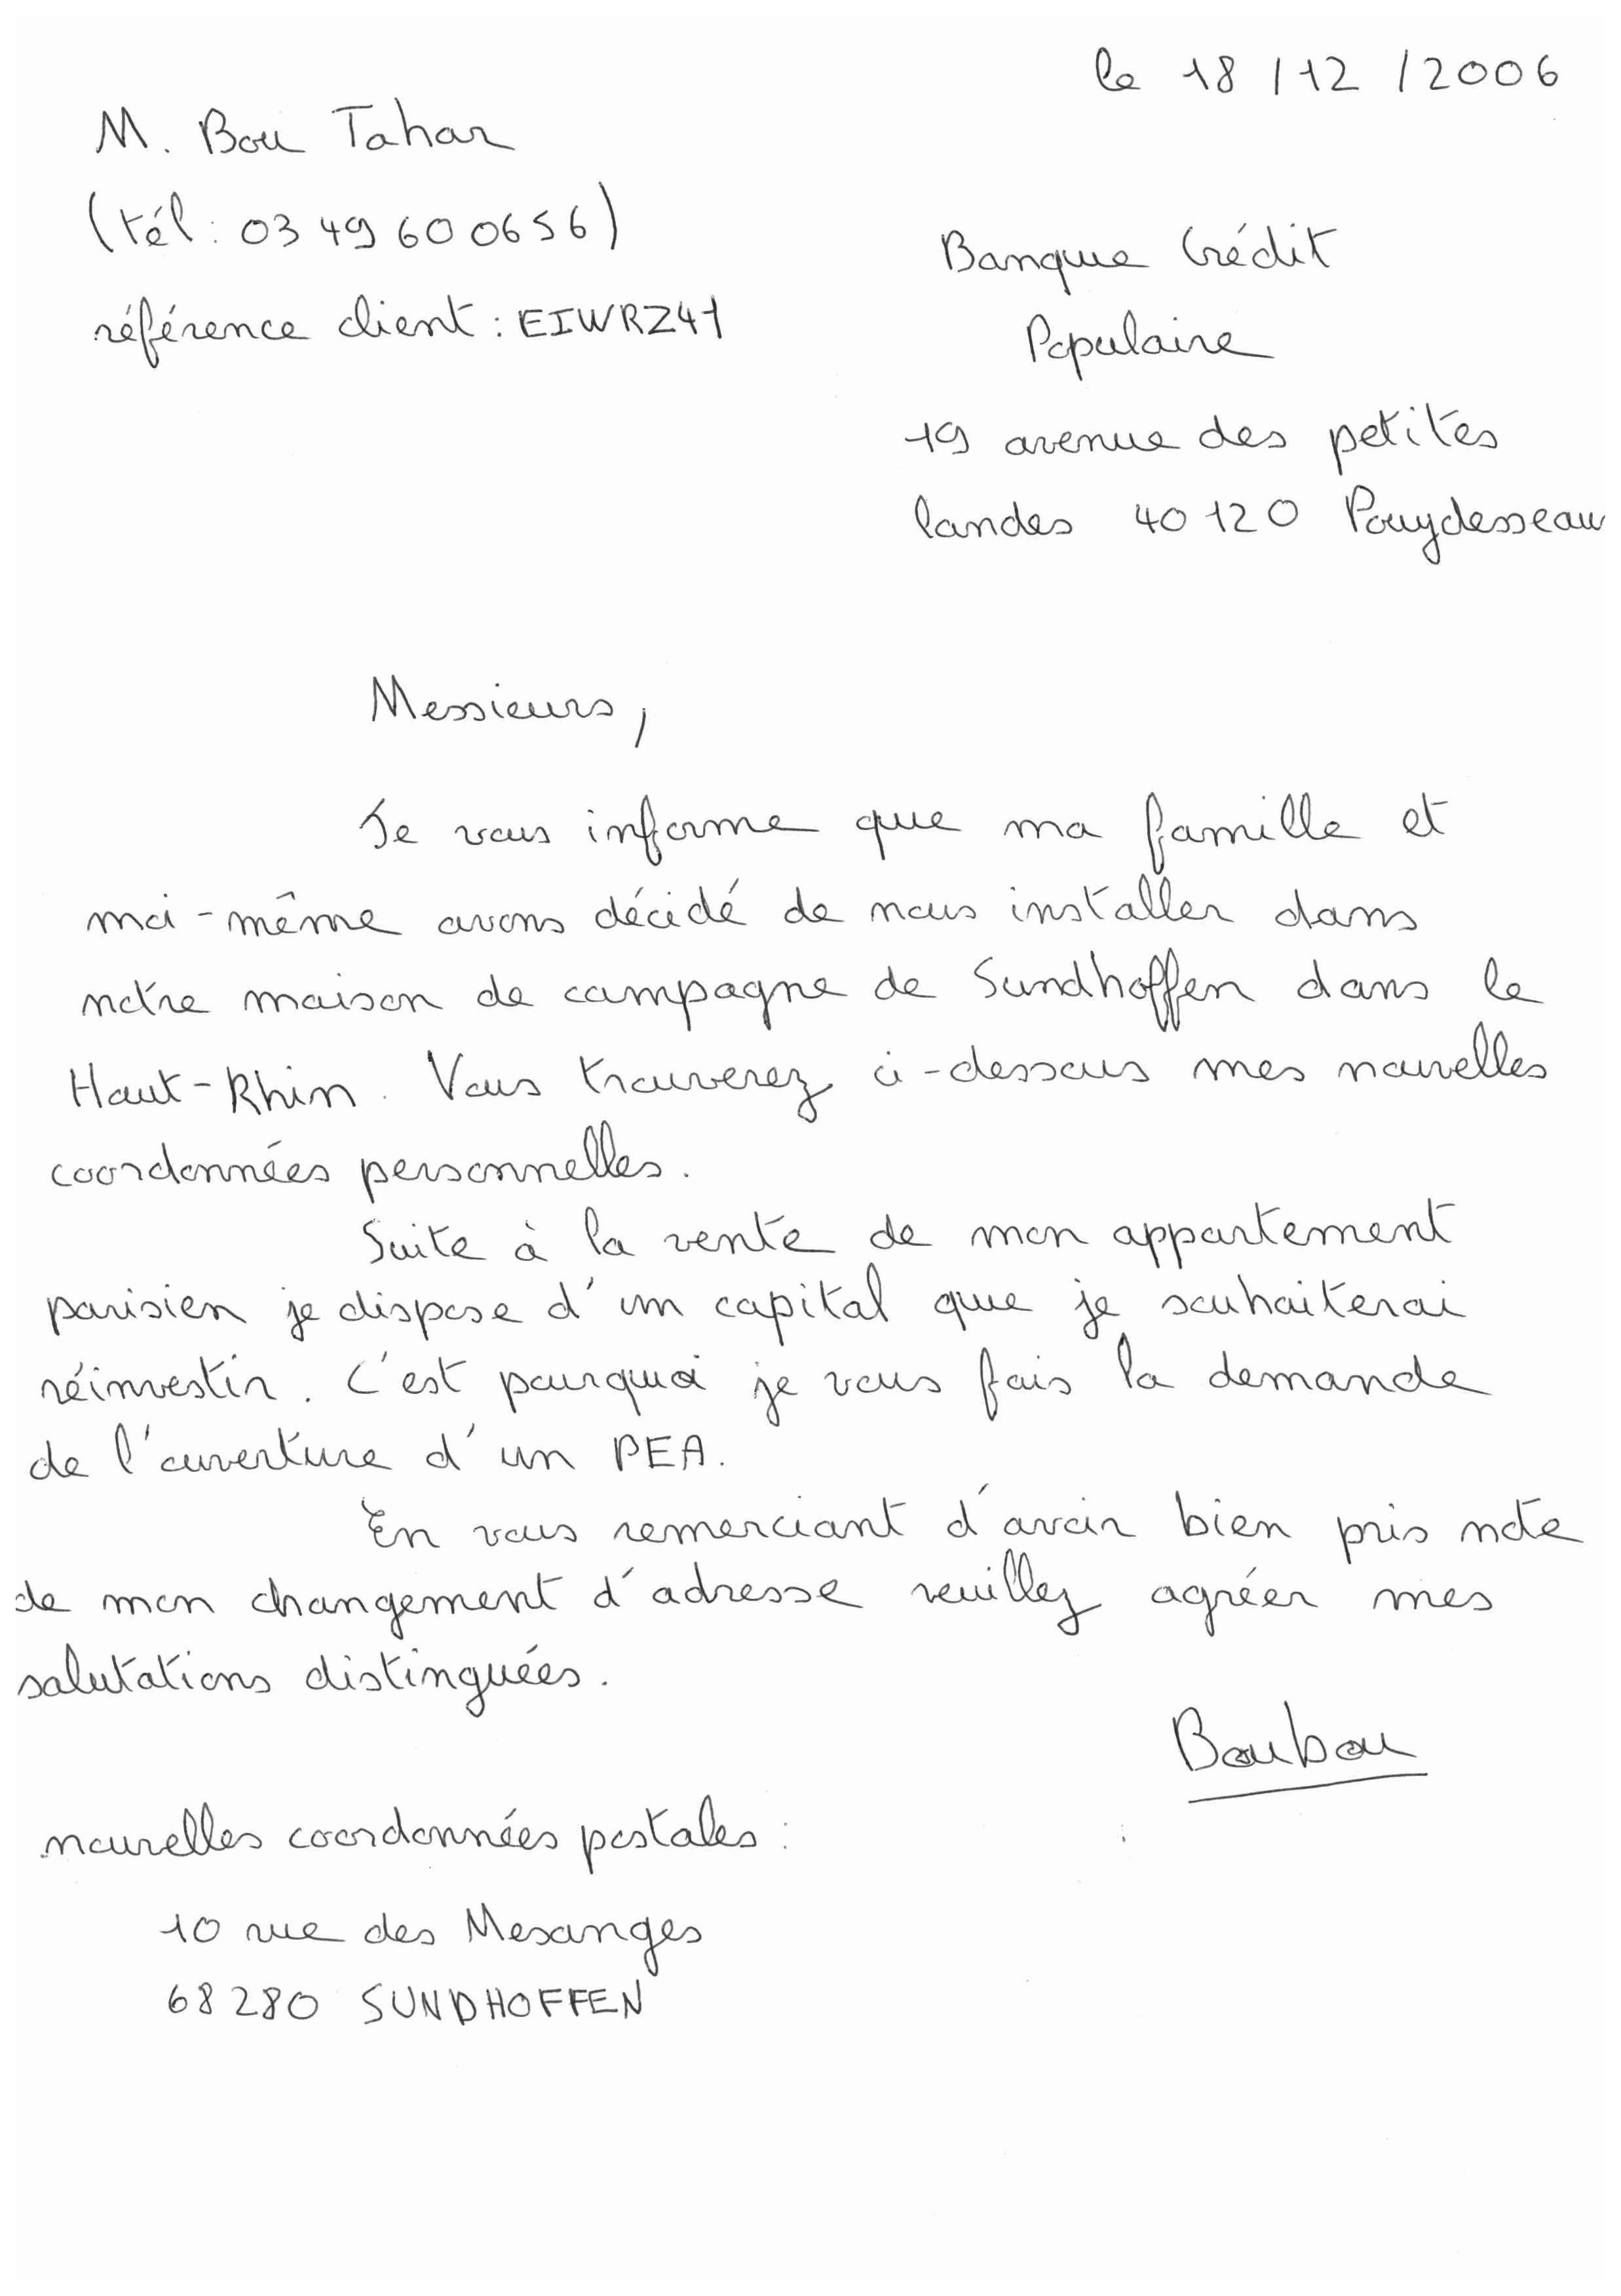 le 18/12/2006
M. Bou Tahar
(tél: 03 49 60 06 56)
référence client: EIWRZ41
Banque Crédit
Populaire
19 avenue des petites
landes 40120 Pouydesseau
Messieurs,
Je vous informe que ma famille et
moi-même avons décidé de nous installer dans
notre maison de campagne de Sundhoffen dans le
Haut-Rhin. Vous trouverez ci-dessous mes nouvelles
coordonnées personnelles.
Suite à la vente de mon appartement
parisien je dispose d'un capital que je souhaiterai
réinvestir. C'est pourquoi je vous fais la demande
de l'ouverture d'un PEA.
En vous remerciant d'avoir bien pris note
de mon changement d'adresse veuillez agréer mes
salutations distinguées.
Boubou
nouvelles coordonnées postales:
10 rue des Mesanges
68280 SUNDHOFFEN